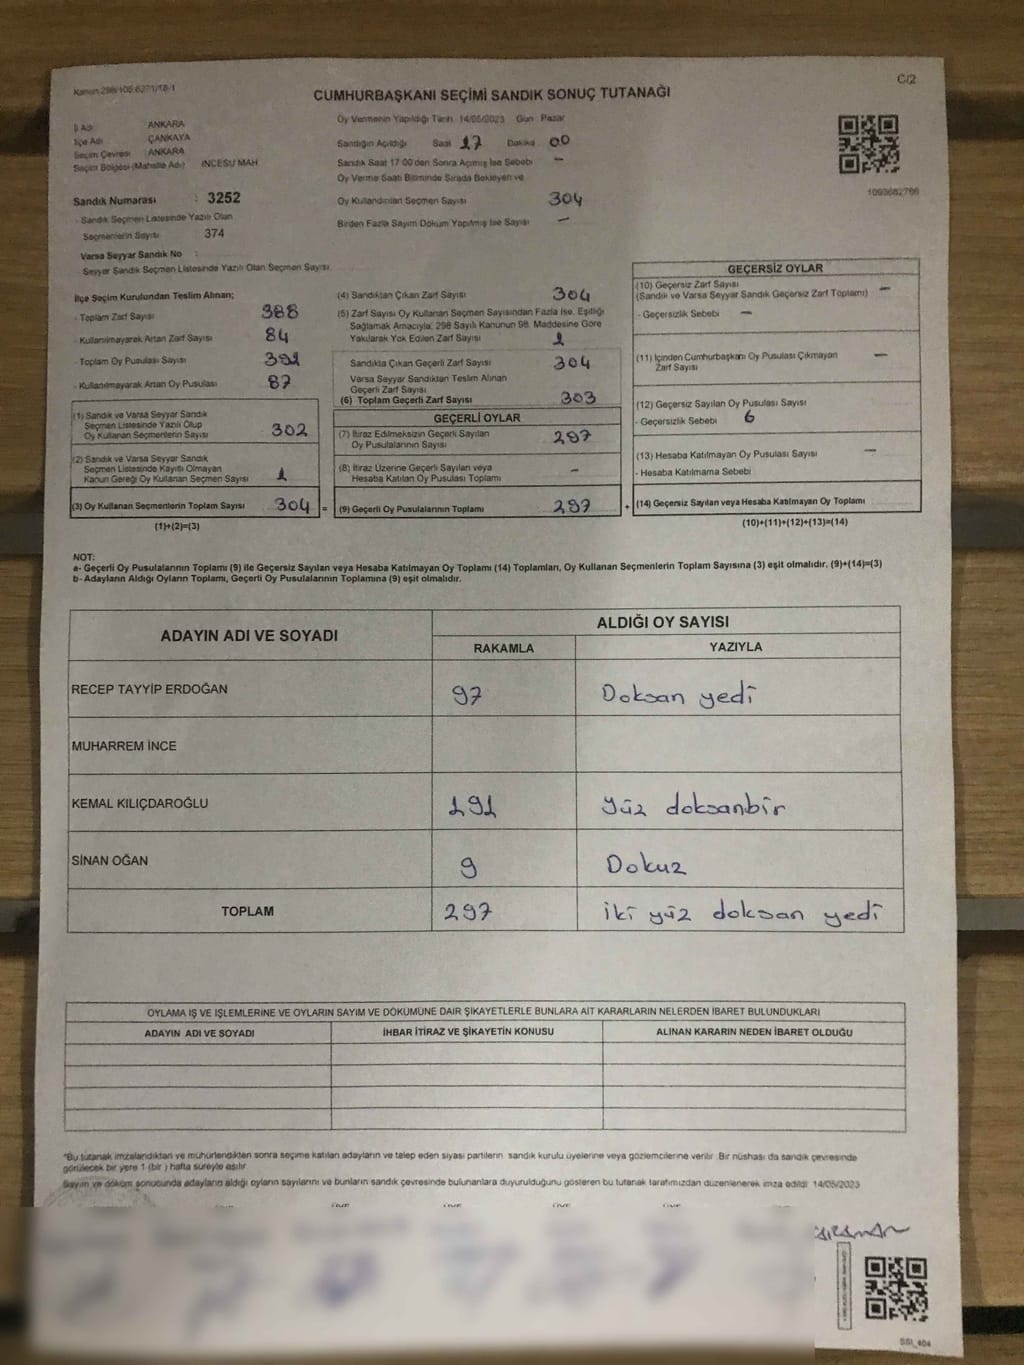 Kanun 298/105 6271/18-1
C/2
CUMHURBAŞKANI SEÇİMİ SANDIK SONUÇ TUTANAĞI
İl Adı ANKARA
İlçe Adı ÇANKAYA
Seçim Çevresi : ANKARA
Seçim Bölgesi (Mahalle Adı) : İNCESU MAH.
Sandık Numarası : 3252
- Sandık Seçmen Listesinde Yazılı Olan
Seçmenlerin Sayısı 374
Varsa Seyyar Sandık No :
- Seyyar Sandık Seçmen Listesinde Yazılı Olan Seçmen Sayısı
Oy Vermenin Yapıldığı Tarih 14/05/2023 Gün Pazar
Sandığın Açıldığı Saat 17 Dakika 00
Sandık Saat 17:00'den Sonra Açılmış İse Sebebi —
Oy Verme Saati Bitiminde Sırada Bekleyen ve
Oy Kullandırılan Seçmen Sayısı 304
Birden Fazla Sayım Döküm Yapılmış İse Sayısı —
1093682786
İlçe Seçim Kurulundan Teslim Alınan;
- Toplam Zarf Sayısı 388
- Kullanılmayarak Artan Zarf Sayısı 84
- Toplam Oy Pusulası Sayısı 391
- Kullanılmayarak Artan Oy Pusulası 87
(1) Sandık ve Varsa Seyyar Sandık
Seçmen Listesinde Yazılı Olup
Oy Kullanan Seçmenlerin Sayısı 302
(2) Sandık ve Varsa Seyyar Sandık
Seçmen Listesinde Kayıtlı Olmayan
Kanun Gereği Oy Kullanan Seçmen Sayısı 1
(3) Oy Kullanan Seçmenlerin Toplam Sayısı 304 =
(1)+(2)=(3)
(4) Sandıktan Çıkan Zarf Sayısı 304
(5) Zarf Sayısı Oy Kullanan Seçmen Sayısından Fazla İse, Eşitliği
Sağlamak Amacıyla; 298 Sayılı Kanunun 98. Maddesine Göre
Yakılarak Yok Edilen Zarf Sayısı 1
Sandıkta Çıkan Geçerli Zarf Sayısı 304
Varsa Seyyar Sandıktan Teslim Alınan
Geçerli Zarf Sayısı
(6) Toplam Geçerli Zarf Sayısı 303
GEÇERLİ OYLAR
(7) İtiraz Edilmeksizin Geçerli Sayılan
Oy Pusulalarının Sayısı 297
(8) İtiraz Üzerine Geçerli Sayılan veya
Hesaba Katılan Oy Pusulası Toplamı -
(9) Geçerli Oy Pusulalarının Toplamı 297 +
GEÇERSİZ OYLAR
(10) Geçersiz Zarf Sayısı
(Sandık ve Varsa Seyyar Sandık Geçersiz Zarf Toplamı) —
- Geçersizlik Sebebi —
(11) İçinden Cumhurbaşkanı Oy Pusulası Çıkmayan
Zarf Sayısı —
(12) Geçersiz Sayılan Oy Pusulası Sayısı
- Geçersizlik Sebebi 6
(13) Hesaba Katılmayan Oy Pusulası Sayısı —
- Hesaba Katılmama Sebebi
(14) Geçersiz Sayılan veya Hesaba Katılmayan Oy Toplamı
(10)+(11)+(12)+(13)=(14)
NOT:
a- Geçerli Oy Pusulalarının Toplamı (9) ile Geçersiz Sayılan veya Hesaba Katılmayan Oy Toplamı (14) Toplamları, Oy Kullanan Seçmenlerin Toplam Sayısına (3) eşit olmalıdır. (9)+(14)=(3)
b- Adayların Aldığı Oyların Toplamı, Geçerli Oy Pusulalarının Toplamına (9) eşit olmalıdır.
ADAYIN ADI VE SOYADI ALDIĞI OY SAYISI
RAKAMLA YAZIYLA
RECEP TAYYİP ERDOĞAN 97 Doksan yedi
MUHARREM İNCE
KEMAL KILIÇDAROĞLU 191 Yüz doksanbir
SİNAN OĞAN 9 Dokuz
TOPLAM 297 iki yüz doksan yedi
OYLAMA İŞ VE İŞLEMLERİNE VE OYLARIN SAYIM VE DÖKÜMÜNE DAİR ŞİKAYETLERLE BUNLARA AİT KARARLARIN NELERDEN İBARET BULUNDUKLARI
ADAYIN ADI VE SOYADI İHBAR İTİRAZ VE ŞİKAYETİN KONUSU ALINAN KARARIN NEDEN İBARET OLDUĞU
*Bu tutanak imzalandıktan ve mühürlendikten sonra seçime katılan adayların ve talep eden siyasi partilerin sandık kurulu üyelerine veya gözlemcilerine verilir. Bir nüshası da sandık çevresinde
görülecek bir yere 1 (bir ) hafta süreyle asılır.
Sayım ve döküm sonucunda adayların aldığı oyların sayılarını ve bunların sandık çevresinde bulunanlara duyurulduğunu gösteren bu tutanak tarafımızdan düzenlenerek imza edildi. 14/05/2023
SSI_404